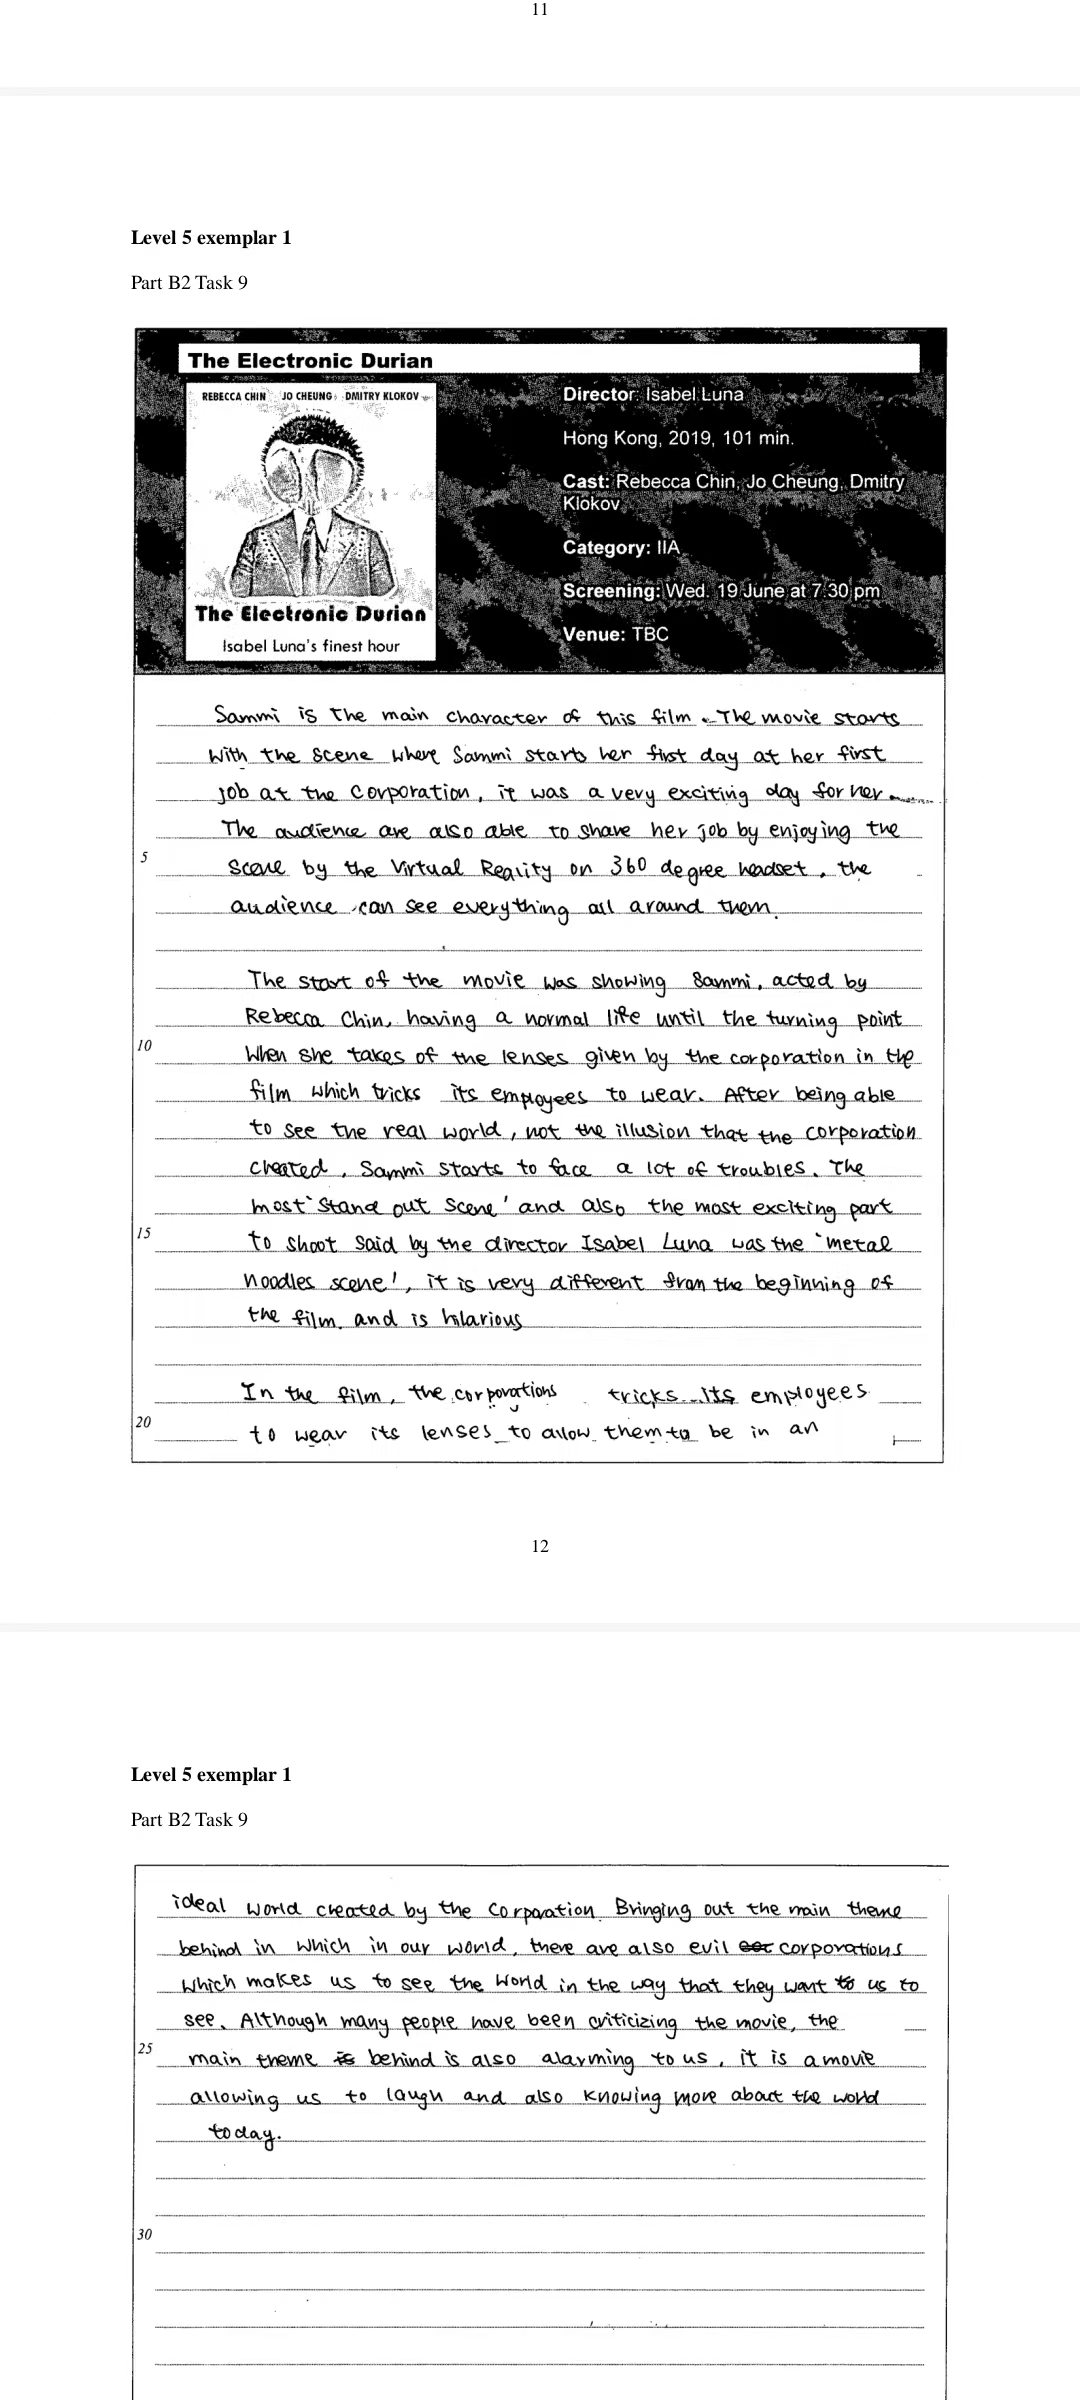 11
Level 5 exemplar 1
Part B2 Task 9
The Electronic Durian
REBECCA CHIN JO CHEUNG DMITRY KLOKOV
The Electronic Durian
Isabel Luna's finest hour
Director: Isabel Luna
Hong Kong, 2019, 101 min.
Cast: Rebecca Chin, Jo Cheung, Dmitry
Klokov
Category: IIA
Screening: Wed. 19 June at 7:30 pm
Venue: TBC
Sammi is the main character of this film. The movie starts
with the scene where Sammi starts her first day at her first
job at the corporation, it was a very exciting day for her.
The audience are also able to share her job by enjoying the
5
scene by the Virtual Reality on 360 degree headset, the
audience can see everything all around them.
The start of the movie was showing Sammi, acted by
Rebecca Chin, having a normal life until the turning point
10
when she takes of the lenses given by the corporation in the
film which tricks its employees to wear. After being able
to see the real world, not the illusion that the corporation
created, Sammi starts to face a lot of troubles. The
most 'stand out scene' and also the most exciting part
15
to shoot said by the director Isabel Luna was the 'metal
noodles scene', it is very different from the beginning of
the film and is hilarious
In the film, the corporations tricks its employees
20
to wear its lenses to allow them to be in an
12
Level 5 exemplar 1
Part B2 Task 9
ideal world created by the corporation. Bringing out the main theme
behind in which in our world, there are also evil corporations
which makes us to see the world in the way that they want to us to
see. Although many people have been criticizing the movie, the
25
main theme is behind is also alarming to us, it is a movie
allowing us to laugh and also knowing more about the world
today.
30